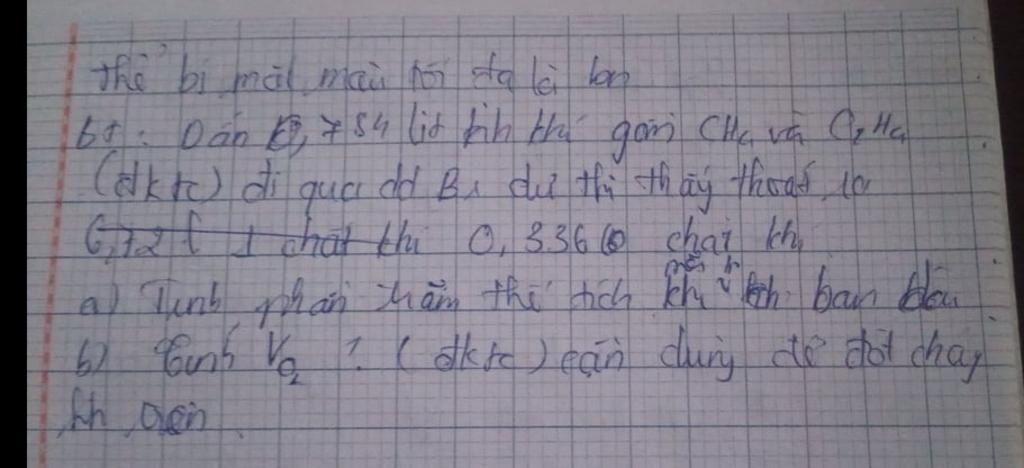 thể bị mất màu tối đa là bn
b5: Dẫn 0,784 lít hh khí gồm CH4 và C2H4
(đktc) đi qua dd Br dư thì thấy thoát ra
6,72 l 1 chất khí 0,336 l chất khí
a) Tính phần trăm thể tích khí hh ban đầu
b) Tính VO2 ? (đktc) cần dùng để đốt cháy
hh trên